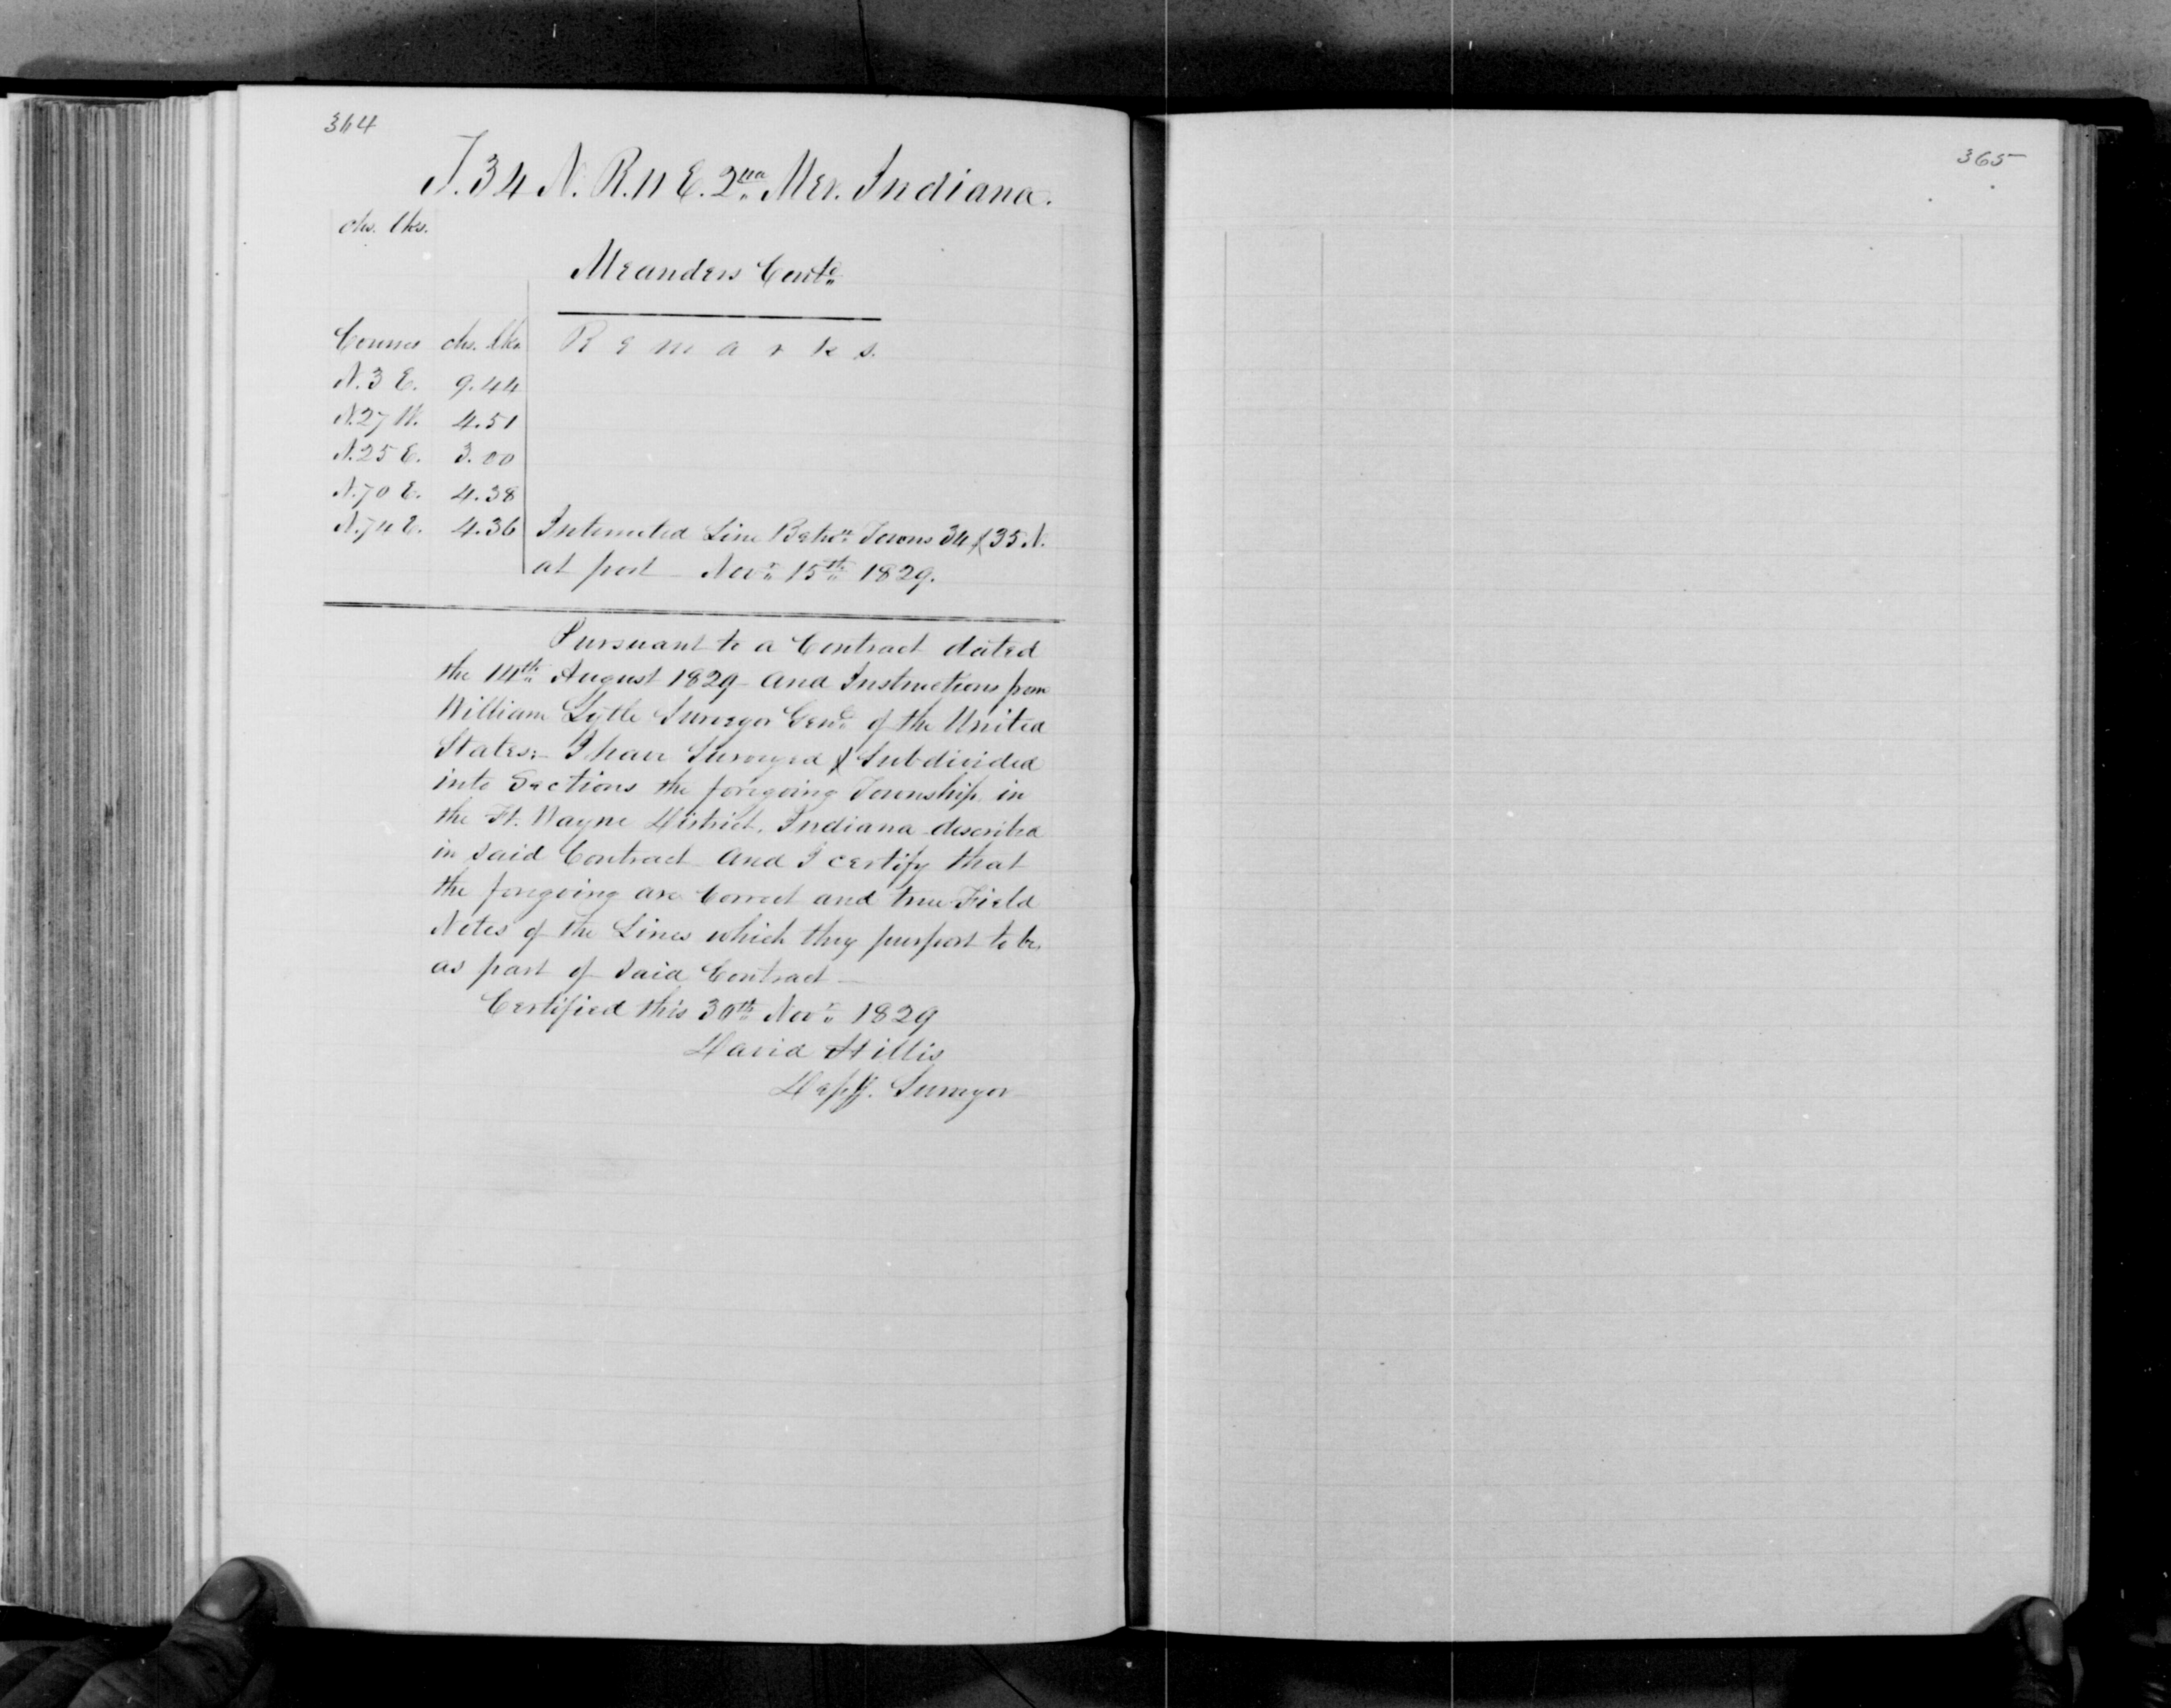 364
T. 34 N. R. 11 E. 2nd Mer. Indiana.
chs. lks.
Meanders Contd
Courses chs. lks. Remarks.
N. 3 E. 9.44
N. 27 W. 4.51
N. 25 E. 3.00
N. 70 E. 4.38
N. 74 E. 4.36 Intersected Line Betwn Towns 34 & 35 N.
at post Novr 15th 1829.
Pursuant to a Contract dated
the 14th August 1829 and Instructions from
William Lytle Surveyor Genl of the United
States:- I have Surveyed & Subdivided
into Sections the foregoing Township in
the Ft. Wayne District, Indiana described
in said Contract and I certify that
the foregoing are Correct and true Field
Notes of the Lines which they purport to be,
as part of said Contract —
Certified this 30th Novr 1829
David Hillis
Depy. Surveyor
365